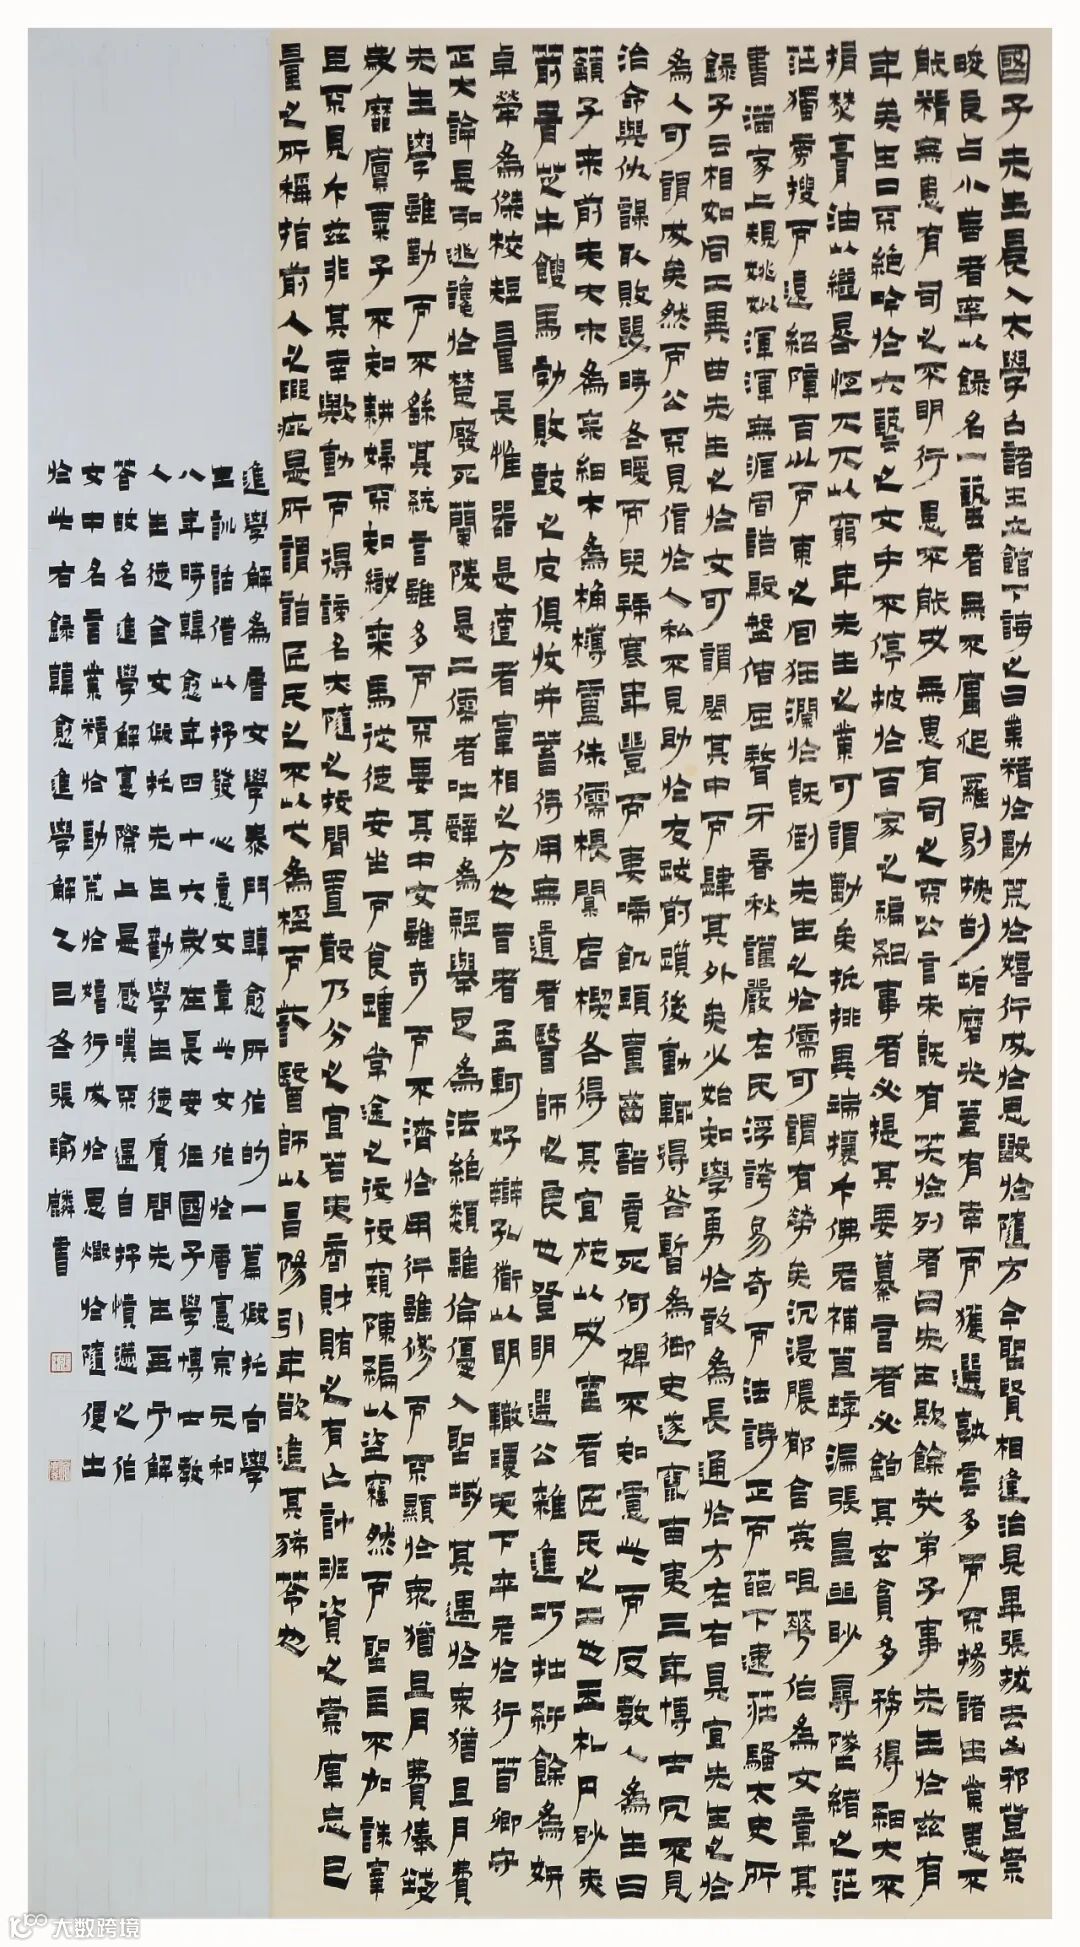 國子先生晨入太學召諸生立館下誨之曰業精於勤荒於嬉行成於思毀於隨方今聖賢相逢治具畢張拔去凶邪登崇
畯良占小善者率以錄名一藝者無不庸爬羅剔抉刮垢磨光蓋有幸而獲選孰雲多而不揚諸生業患不
能精無患有司之不明行患不能成無患有司之不公言未既有笑於列者曰先生欺餘哉弟子事先生於茲有
年矣生口不絕吟於六藝之文手不停披於百家之編紀事者必提其要纂言者必鉤其玄貪多務得細大不
捐焚膏油以繼晷恆兀兀以窮年先生之業可謂勤矣抵排異端攘斥佛老補苴罅漏張皇幽眇尋墜緒之茫
茫獨旁搜而遠紹障百川而東之回狂瀾於既倒先生之於儒可謂有勞矣沉浸醲郁含英咀華作為文章其
書滿家上規姚姒渾渾無涯周誥殷盤佶屈聱牙春秋謹嚴左氏浮誇易奇而法詩正而葩下逮莊騷太史所
錄子云相如同工異曲先生之於文可謂閎其中而肆其外矣少始知學勇於敢為長通於方左右具宜先生之於
為人可謂成矣然而公不見信於人私不見助於友跋前躓後動輒得咎暫為御史遂竄南夷三年博士冗不見
治命與仇謀取敗幾時冬暖而兒號寒年豐而妻啼飢頭童齒豁竟死何裨不知慮此而反教人為生曰
籲子來前夫大木為杗細木為桷欂櫨侏儒椳闑扂楔各得其宜施以成室者匠氏之工也玉札丹砂赤
箭青芝牛餿馬勃敗鼓之皮俱收并蓄待用無遺者醫師之良也登明選公雜進巧拙紆餘為妍
卓犖為傑校短量長惟器是適者宰相之方也昔者孟軻好辯孔道以明轍環天下卒老於行荀卿守
正大論是弘逃讒於楚廢死蘭陵是二儒者吐辭為經舉足為法絕類離倫優入聖域其遇於衆猶且月費
先生學雖勤而不繇其統言雖多而不要其中文雖奇而不濟於用行雖修而不顯於衆猶且月費俸錢
歲靡廩粟子不知耕婦不知織乘馬從徒安坐而食踵常途之役役窺陳編以盜竊然而聖主不加誅宰
臣不見斥茲非其幸歟動而得謗名亦隨之投閒置散乃分之宜若夫商財賄之有亡計班資之崇庳忘己
量之所稱指前人之瑕疵是所謂詰匠氏之不以杙為楹而訾醫師以昌陽引年欲進其豨苓也
進學解為唐文學泰門韓愈所作的一篇假托向學
生訓話借以抒發心意文章此文作於唐憲宗元和
八年時韓愈年四十六歲在長安任國子學博士教
人生徒全文假托先生勸學生徒質問先生再予解
答故名進學解實際上是感嘆不遇自抒憤懣之作
文中名言業精於勤荒於嬉行成於思毀於隨便出
於此右錄韓愈進學解乙巳冬張瑜麟書
大数跨境